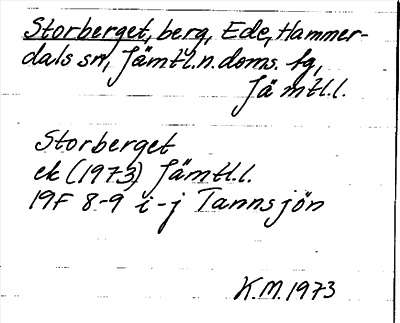 Storberget, berg, Ede, Hammer-
dals sn, Jämtl.n.doms. fg,
Jämtl.l.
Storberget
ek (1973) Jämtl.l.
19F 8-9 i-j Tannsjön
K.M. 1973